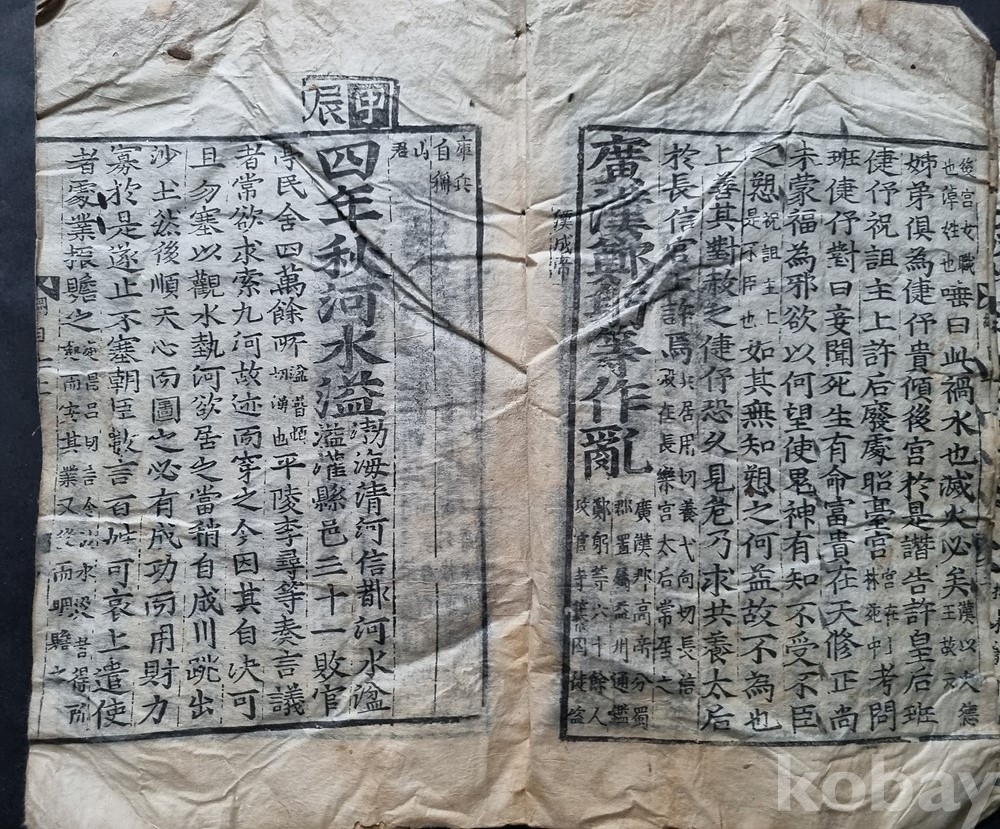 後宮女職
也淖姓也
唾曰此禍水也滅火必矣
漢以火德
王故云
姊弟俱為倢伃貴傾後宮於是譖告許皇后班
倢伃祝詛主上許后廢處昭臺宮
考問
班倢伃對曰妾聞死生有命富貴在天修正尚
未蒙福為邪欲以何望使鬼神有知不受不臣
之愬
祝詛主上
是不臣也
如其無知愬之何益故不為也
上善其對赦之倢伃恐久見危乃求共養太后
於長信宮上許焉
共居用切養弋向切長信
宮太后常居之
廣漢鄭躬等作亂
廣漢郡高帝分蜀
郡置屬益州通鑑
鄭躬等六十餘人
漢成帝
庫兵
自稱
山
君
甲
辰
四年秋河水溢
渤海清河信都河水溢
溢灌縣邑三十一敗官
亭民舍四萬餘所
平陵李尋等奏言議
者常欲求索九河故迹而穿之今因其自决可
且勿塞以觀水執河欲居之當稍自成川跳出
沙土然後順天心而圖之必有成功而用財力
寡於是遂止不塞朝臣數言百姓可哀上遣使
者處業振贍之